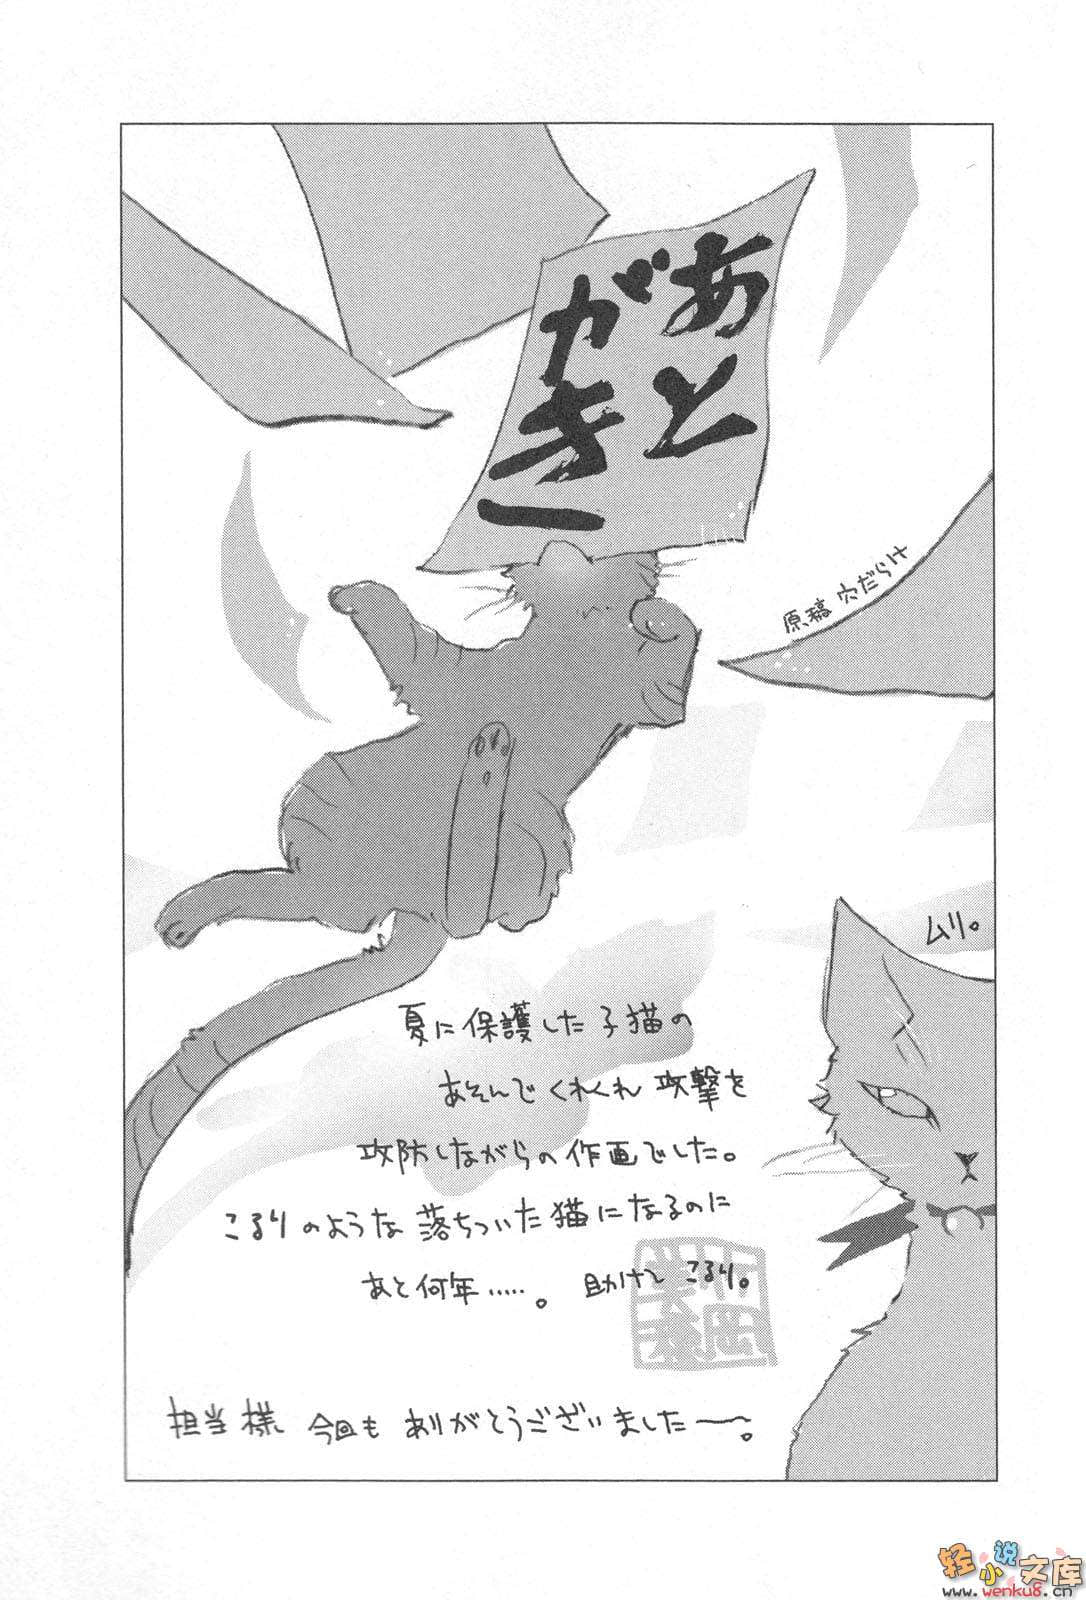 あと
がき
原稿 穴だらけ
ムリ。
夏に保護した子猫の
あそんでくれくれ攻撃を
攻防しながらの作画でした。
こるりのような落ちついた猫になるのに
あと何年……。 助けて こるり。
担当様 今回も ありがとうございました〜〜。
轻小说文库
www.wenku8.cn